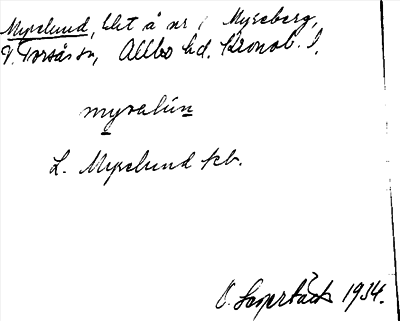 Myrelund, lht å nr 1 Myreberg,
V. Torsås sn, Allbo hd. Kronob. l.
myrelún
L. Myrelund kb.
1934.